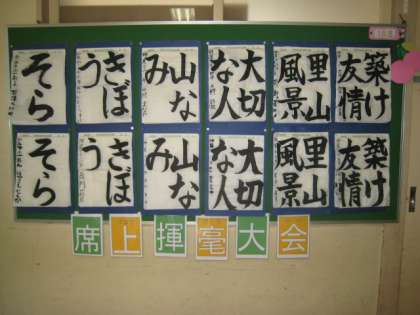 築け
友情
里山
風景
大切
な人
山な
み
きぼ
う
そら
築け
友情
里山
風景
大切
な人
山な
み
きぼ
う
そら
席上揮毫大会